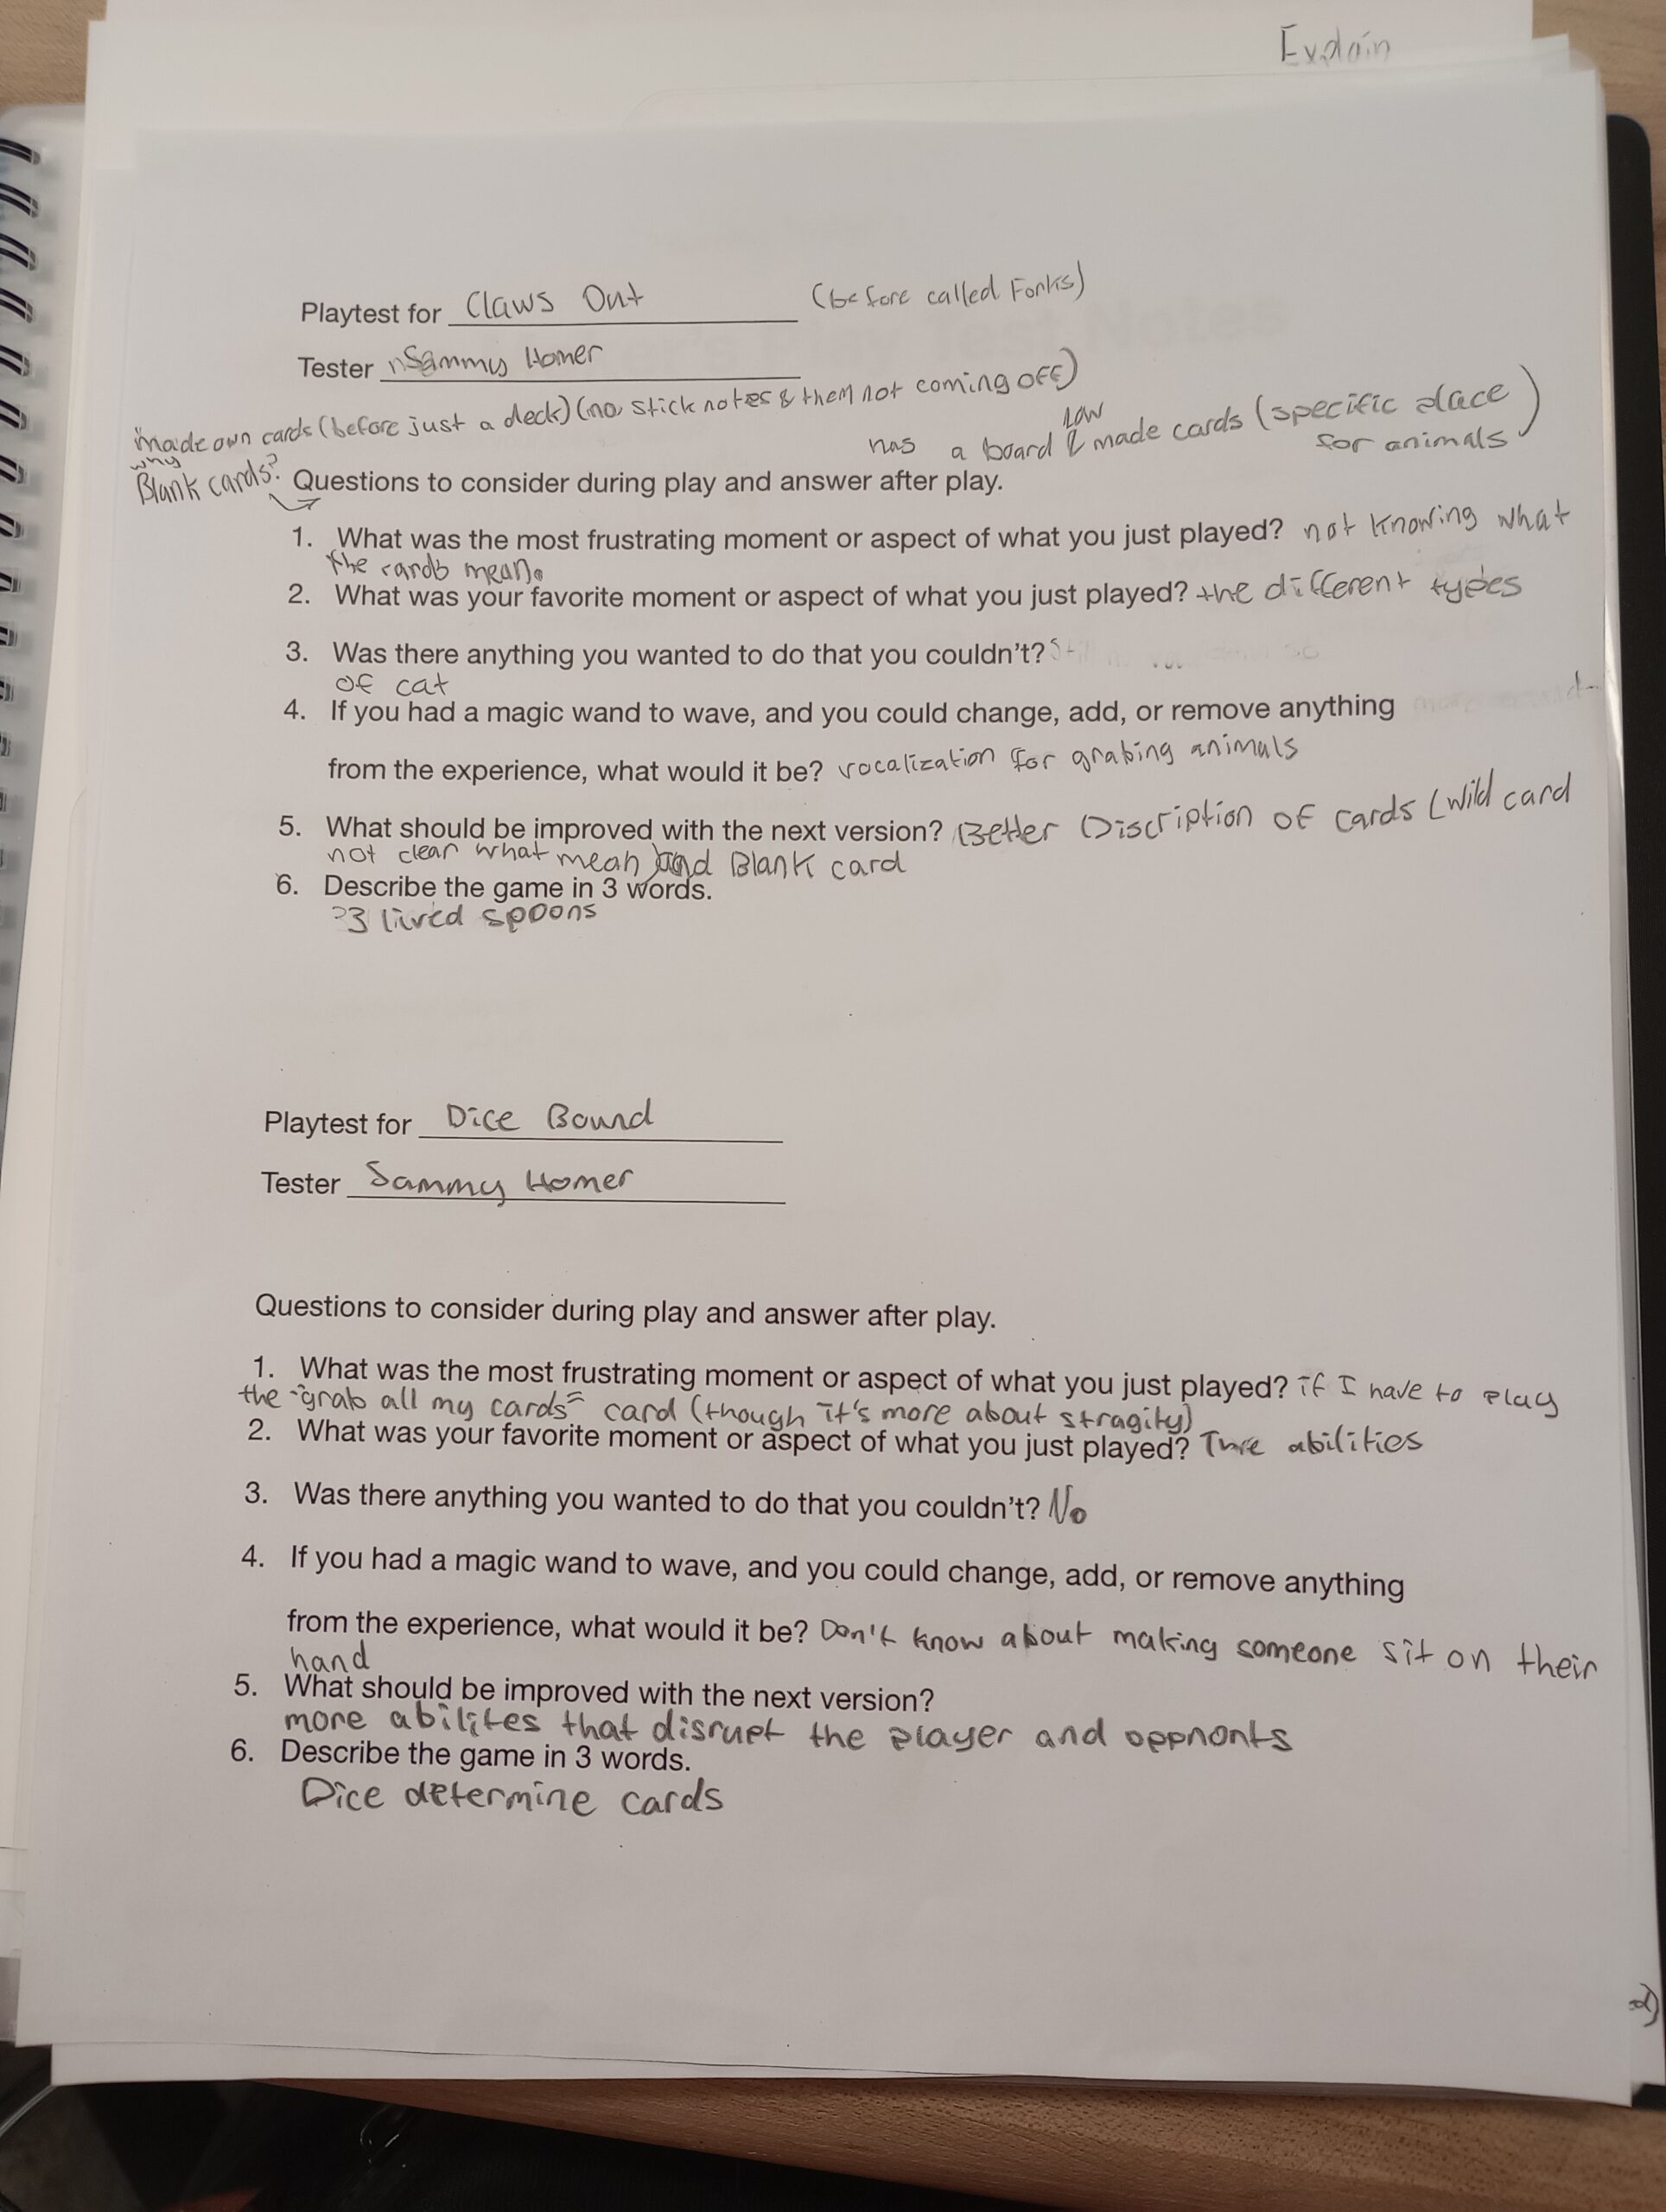 Explain
Playtest for Claws Out (before called Forks)
Tester Sammy Homer
made own cards (before just a deck) (no stick notes & them not coming off)
has a board & made cards (specific place for animals)
now
why
Blank cards?
Questions to consider during play and answer after play.
1. What was the most frustrating moment or aspect of what you just played? not knowing what
the cards mean.
2. What was your favorite moment or aspect of what you just played? the different types
3. Was there anything you wanted to do that you couldn't?
of cat
4. If you had a magic wand to wave, and you could change, add, or remove anything
from the experience, what would it be? vocalization for grabing animals
5. What should be improved with the next version? Better Discription of cards (Wild card
not clear what mean) and Blank card
6. Describe the game in 3 words.
3 lived spoons
Playtest for Dice Bound
Tester Sammy Homer
Questions to consider during play and answer after play.
1. What was the most frustrating moment or aspect of what you just played? if I have to play
the "grab all my cards" card (though it's more about stragity)
2. What was your favorite moment or aspect of what you just played? abilities
3. Was there anything you wanted to do that you couldn't? No
4. If you had a magic wand to wave, and you could change, add, or remove anything
from the experience, what would it be? Don't know about making someone sit on their
hand
5. What should be improved with the next version?
more abilites that disrupt the player and oppnonts
6. Describe the game in 3 words.
Dice determine cards